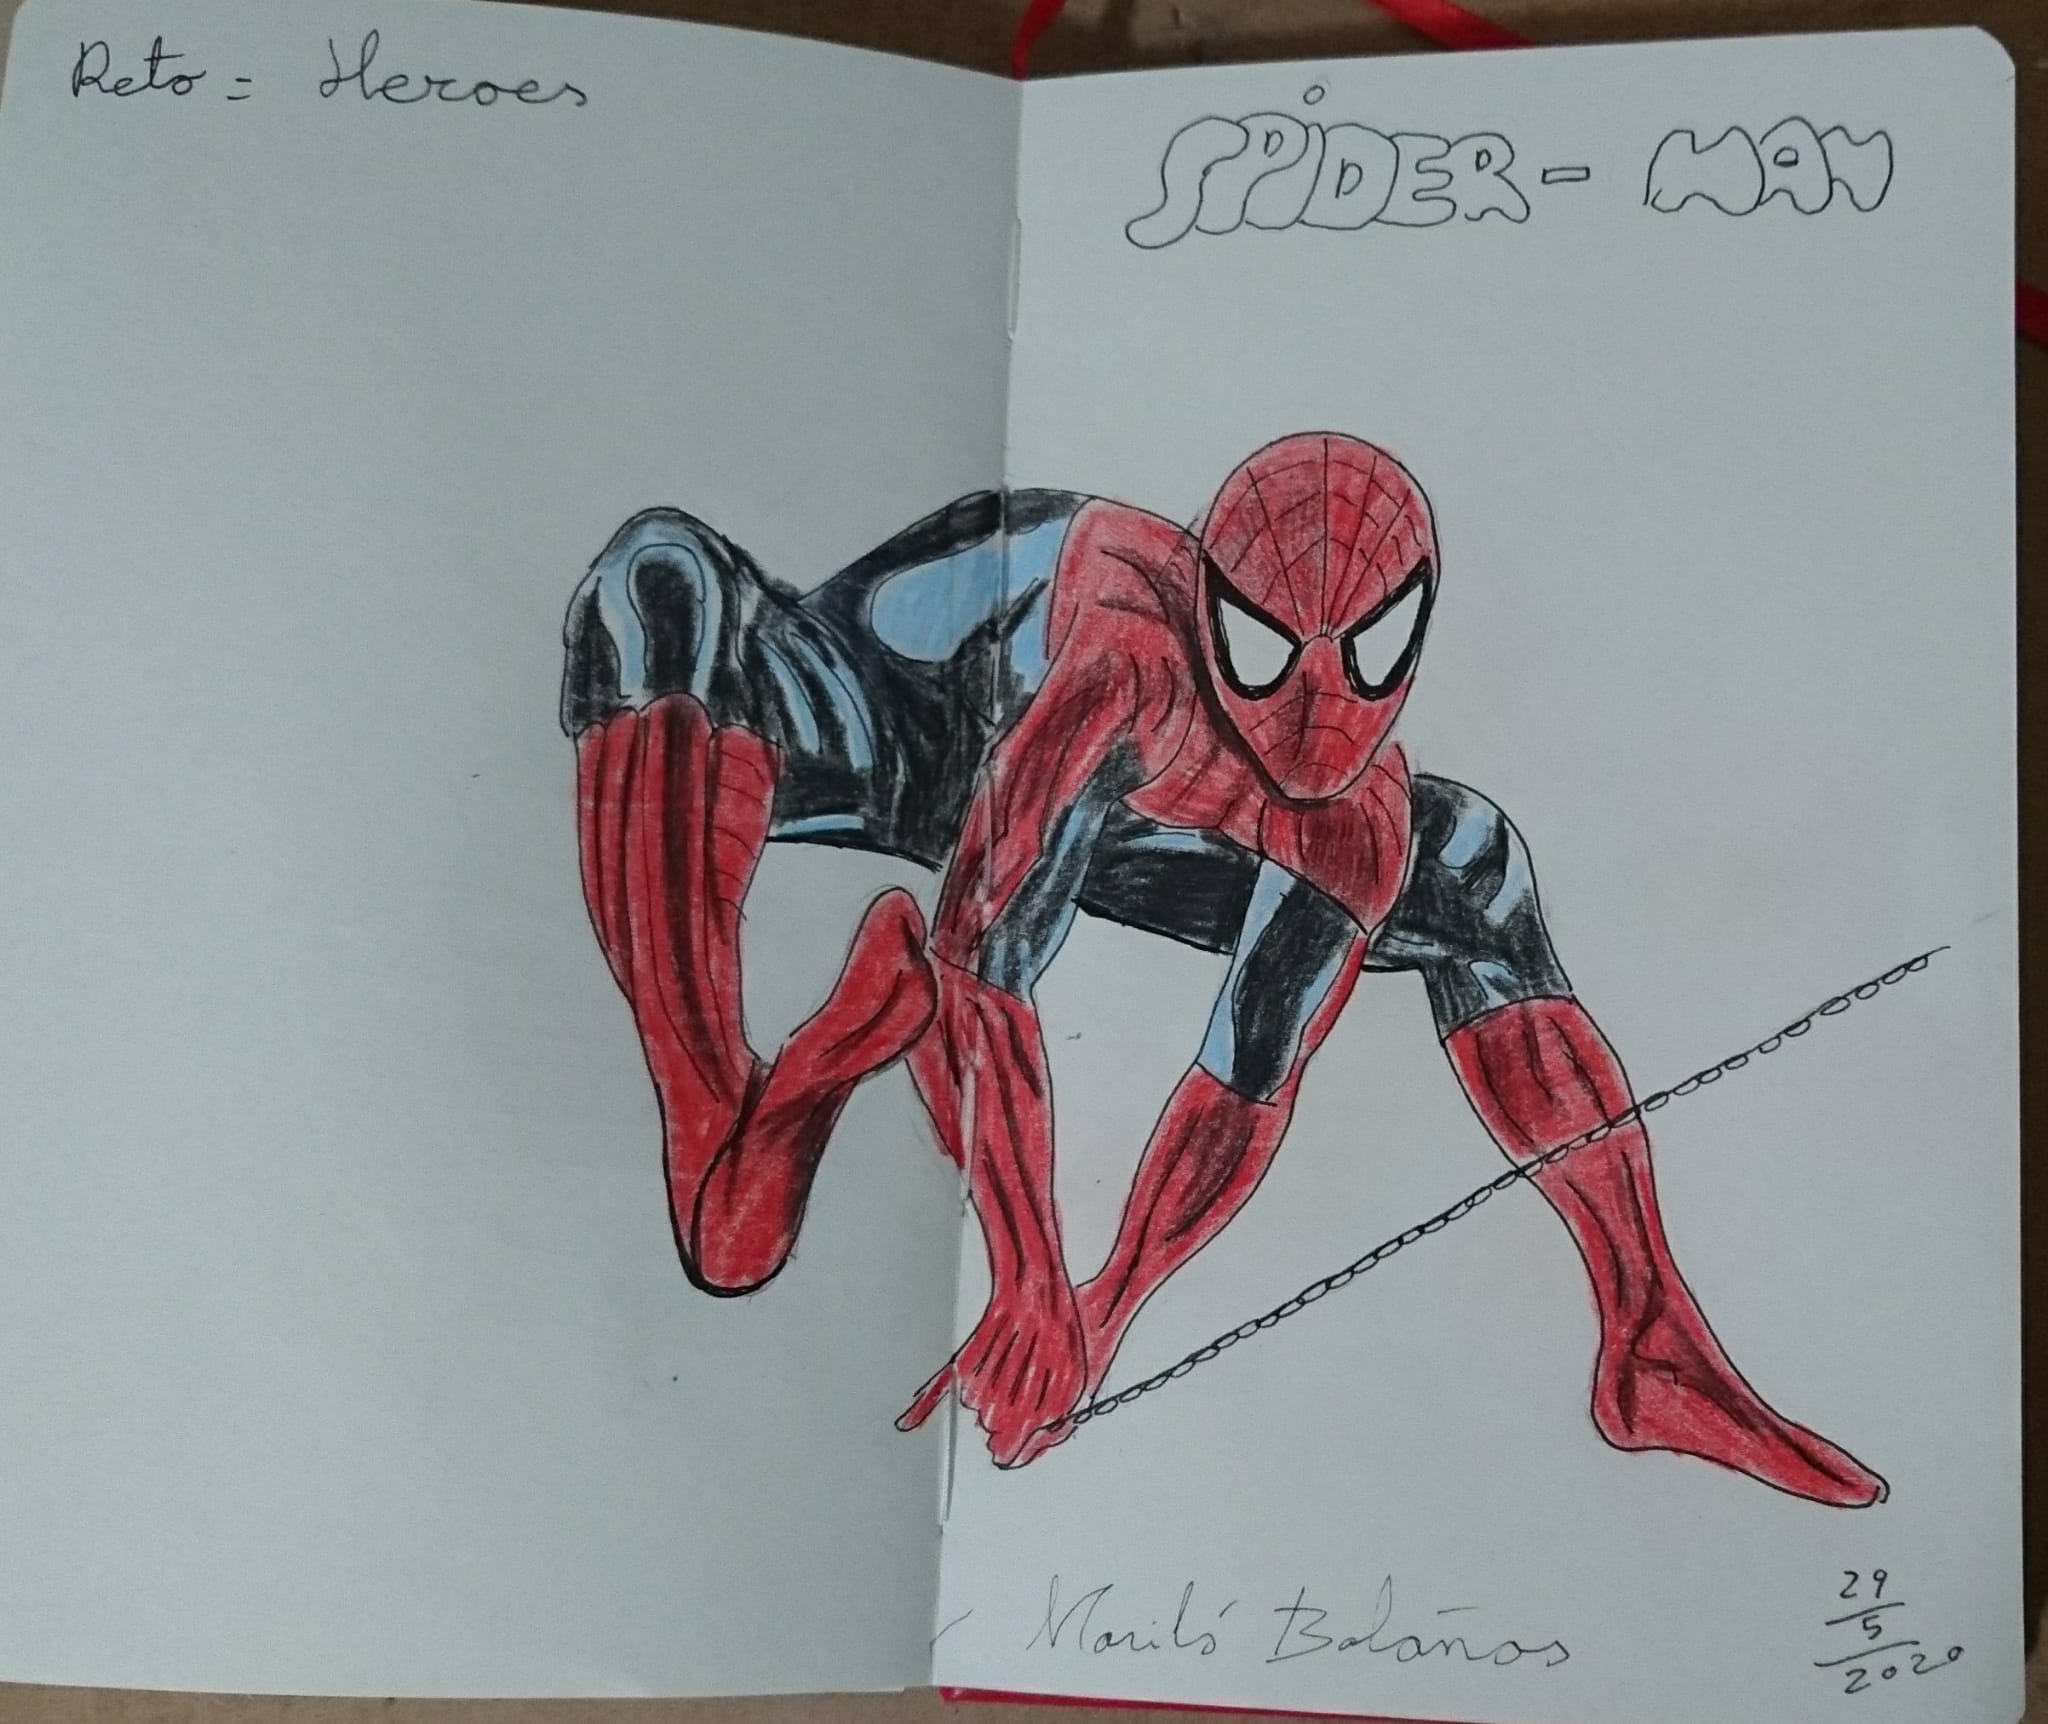 Reto = Heroes
SPiDER - MAN
Mariló Bolaños
29
5
2020